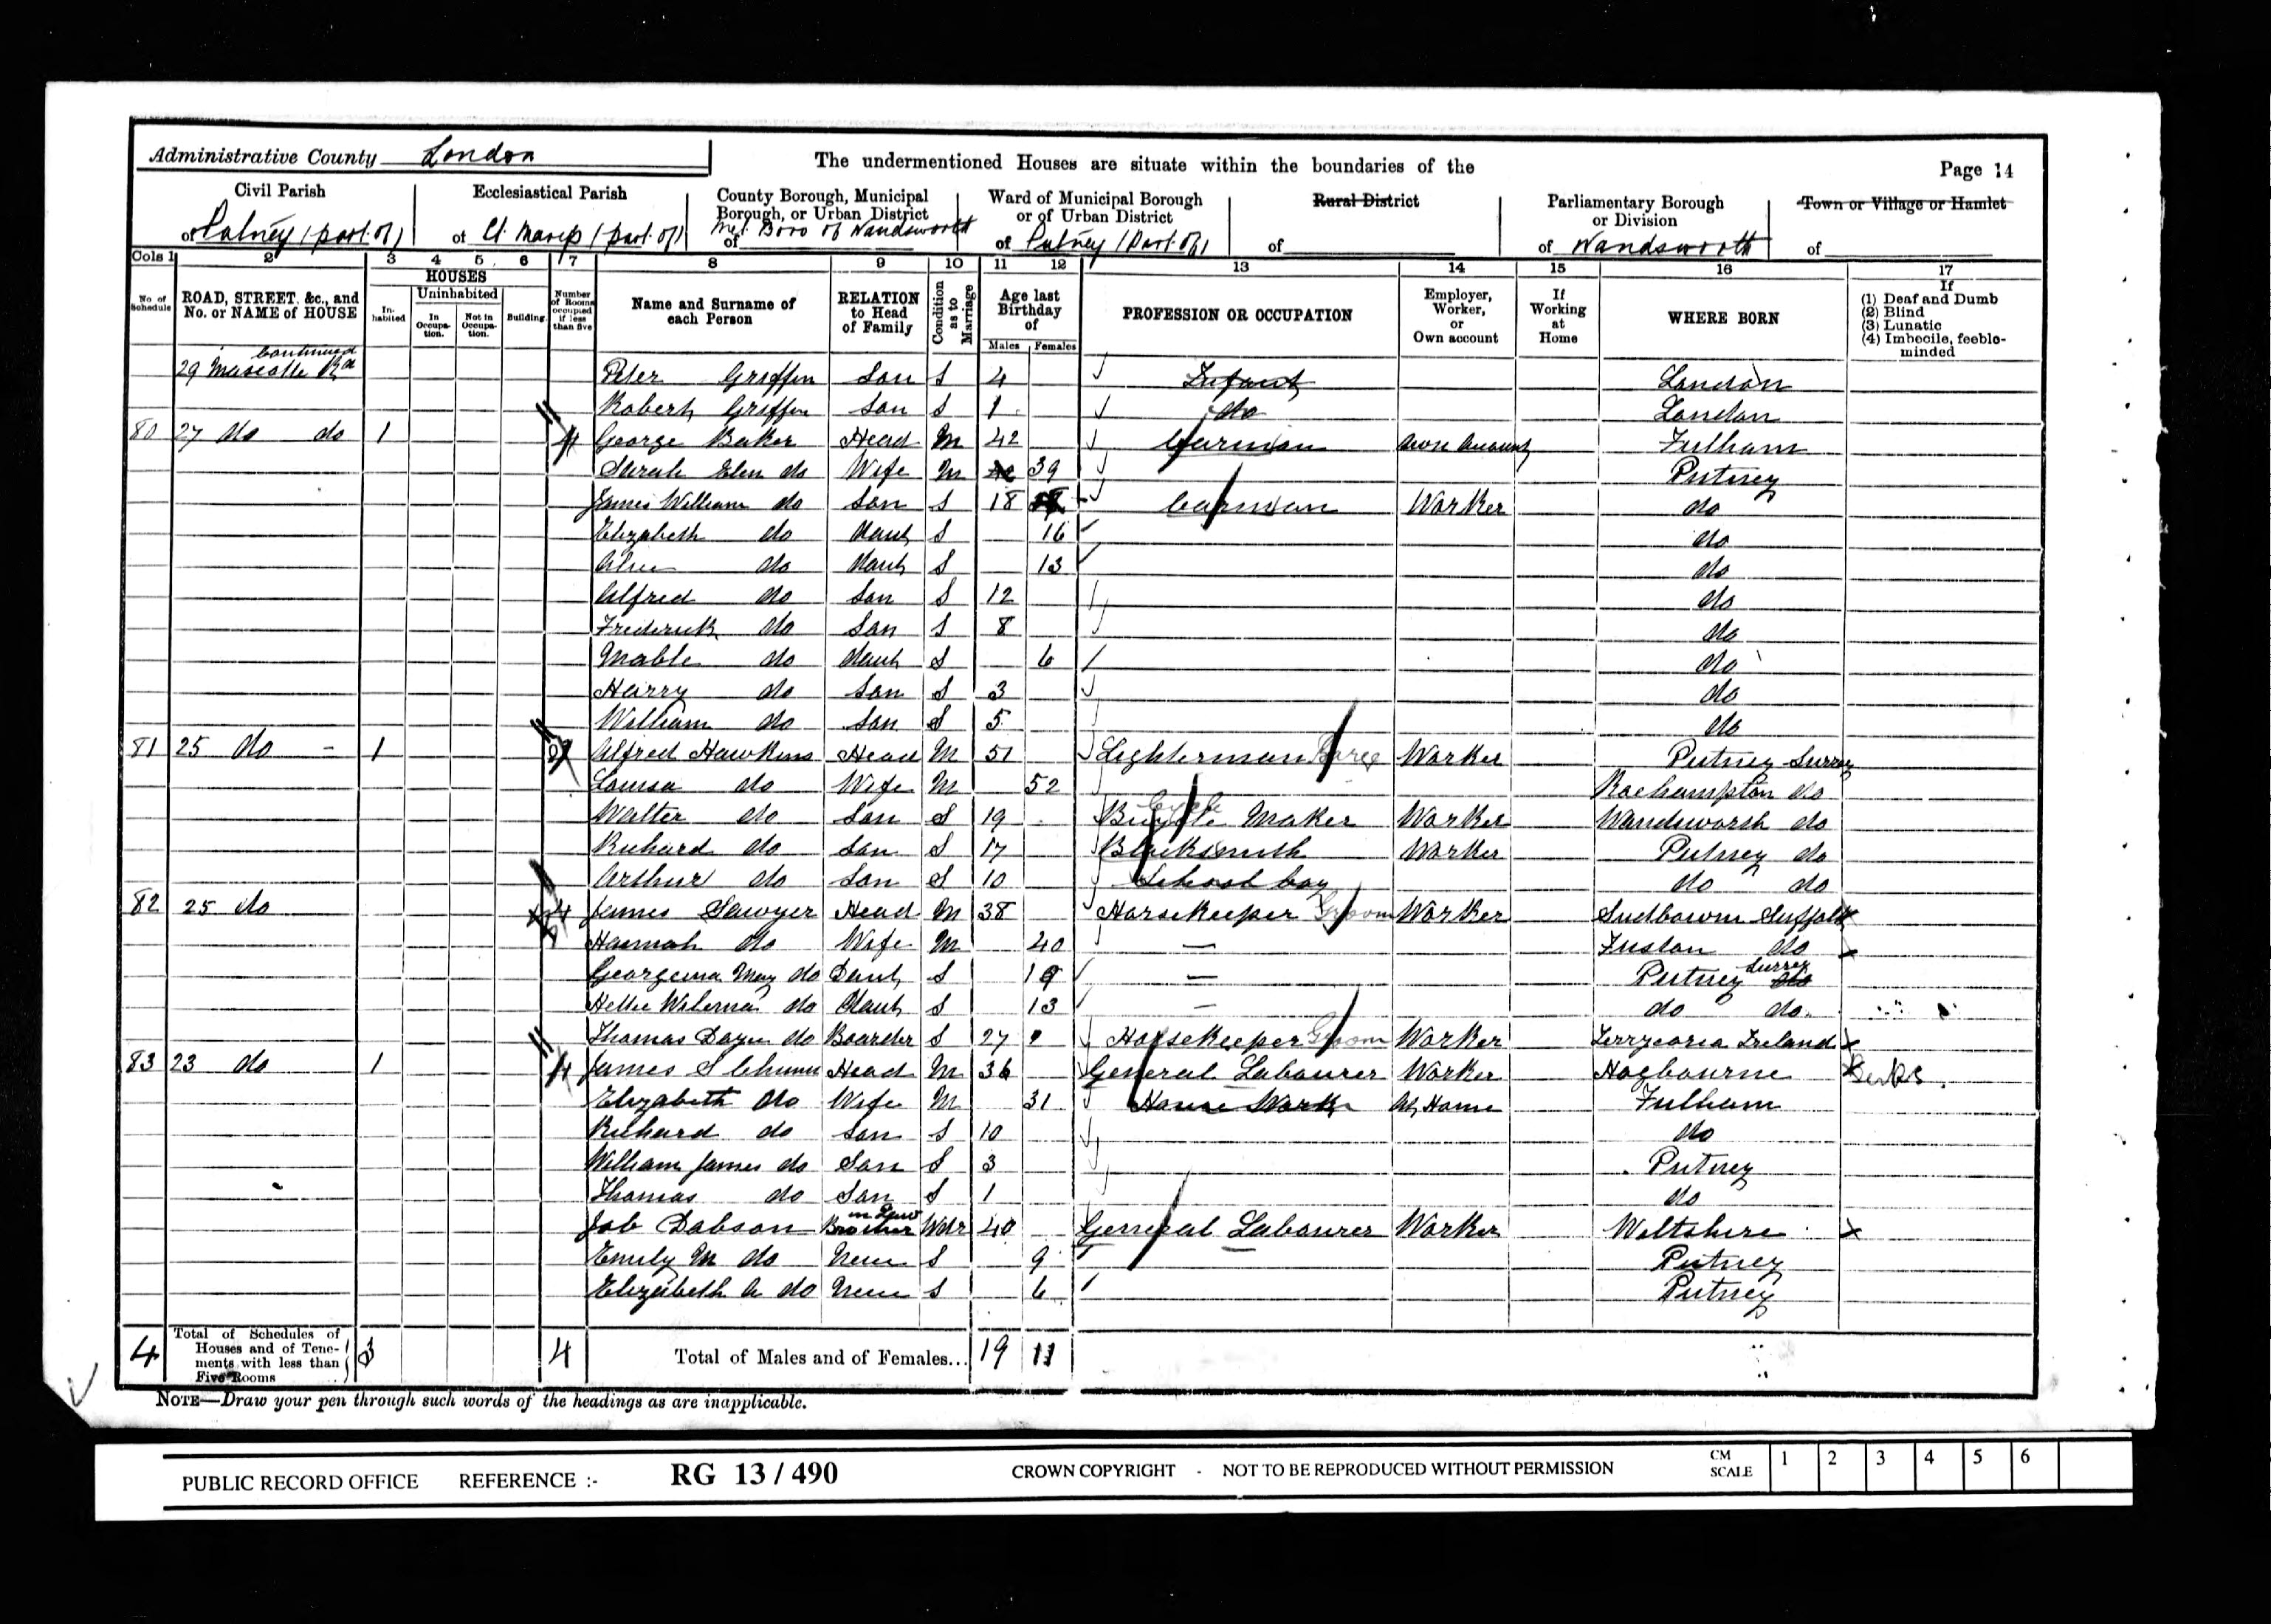 Administrative County London
The undermentioned Houses are situate within the boundaries of the
Page 14
Civil Parish
of Putney (part of)
Ecclesiastical Parish
of St Marys (part of)
County Borough, Municipal Borough, or Urban District
of Met. Boro of Wandsworth
Ward of Municipal Borough or of Urban District
of Putney (Part of)
Rural District
of
Parliamentary Borough or Division
of Wandsworth
Town or Village or Hamlet
of
Cols 1 2 3 4 5 6 7 8 9 10 11 12 13 14 15 16 17
No of Schedule
ROAD, STREET, &c., and No. or NAME of HOUSE
HOUSES
Inhabited
Uninhabited
In Occupation.
Not in Occupation.
Building
Number of Rooms occupied if less than five
Name and Surname of each Person
RELATION to Head of Family
Condition as to Marriage
Age last Birthday of
Males Females
PROFESSION OR OCCUPATION
Employer, Worker, or Own account
If Working at Home
WHERE BORN
If
(1) Deaf and Dumb
(2) Blind
(3) Lunatic
(4) Imbecile, feeble-minded
continued
29 Rd Peter Griffin Son S 4 Infant London
Robert Griffin Son S 1 do London
80 27 do do 1 4 George Baker Head M 42 Carman Own Account Fulham
Sarah Elen do Wife M 39 Putney
James William do Son S 18 Carman Worker do
Elizabeth do Daut S 16 do
Alice do Daut S 13 do
Alfred do Son S 12 do
Frederick do Son S 8 do
Mable do Daut S 6 do
Harry do Son S 3 do
William do Son S 5 do
81 25 do - 1 Alfred Hawkins Head M 51 Lighterman Barge Worker Putney Surrey
Louisa do Wife M 52 Roehampton do
Walter do Son S 19 Bicycle Cycle Maker Worker Wandsworth do
Richard do Son S 17 Blacksmith Worker Putney do
Arthur do Son S 10 School boy do do
82 25 do 4 James Sawyer Head M 38 Horsekeeper Groom Worker Sudbourn Suffolk
Hannah do Wife M 40 — do
Georgena May do Daut S 19 — Putney Surrey do
do Daut S 13 — do do
Thomas do Boarder S 27 Horsekeeper Groom Worker Ireland
83 23 do 1 4 James S Head M 36 General Labourer Worker Hagbourne Berks
Elizabeth do Wife M 31 House Work At Home Fulham
Richard do Son S 10 do
William James do Son S 3 Putney
Thomas do Son S 1 do
Job Dobson Brother in Law Widr 40 General Labourer Worker Wiltshire
Emily M do Niece S 9 Putney
Elizabeth A do Niece S 6 Putney
4 Total of Schedules of Houses and of Tenements with less than Five Rooms 3 4 Total of Males and of Females... 19 11
NOTE—Draw your pen through such words of the headings as are inapplicable.
PUBLIC RECORD OFFICE REFERENCE :- RG 13 / 490 CROWN COPYRIGHT - NOT TO BE REPRODUCED WITHOUT PERMISSION CM SCALE 1 2 3 4 5 6